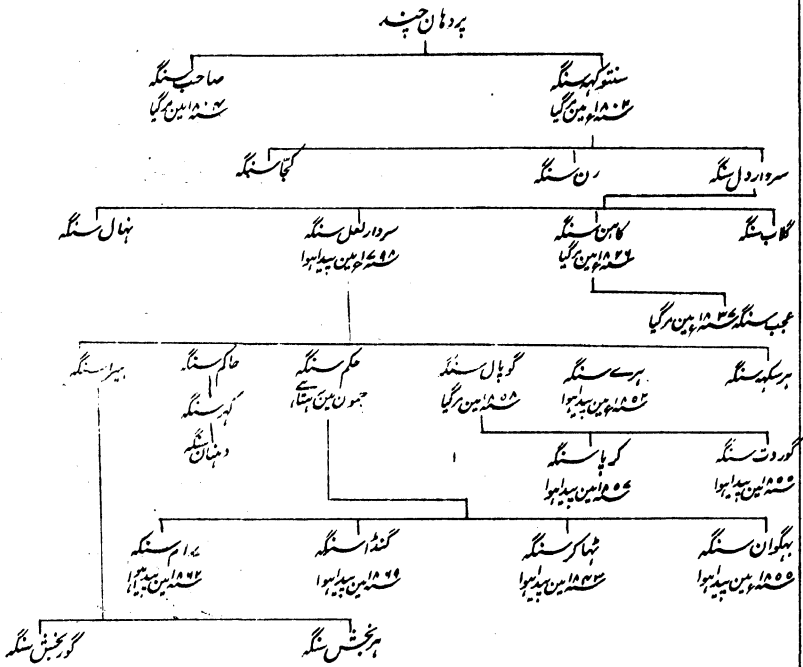 پردهان چند
سنتوکہہ سنگہ
سنہ ۱۸۰۳ء مین مرگیا
صاحب سنگہ
سنہ ۱۸۰۴ مین مرگیا
سردار دل سنگہ
رن سنگہ
کجّا سنگہ
گلاب سنگہ
کاہن سنگہ
سنہ ۱۸۲۶ء مین مرگیا
سردار لعل سنگہ
سنہ ۱۷۹۸ء مین پیدا ہوا
نہال سنگہ
عجب سنگہ سنہ ۱۸۳۷ء مین مرگیا
ہر سکہہ سنگہ
ہرے سنگہ
سنہ ۱۸۵۲ء مین پیدا ہوا
گوپال سنگہ
سنہ ۱۸۵۸ مین مرگیا
حکم سنگہ
جمون مین ہے
حاکم سنگہ
ہیرا سنگہ
کہر سنگہ
دہنان سنگہ
گوردت سنگہ
سنہ ۱۸۵۵ مین پیدا ہوا
کرپا سنگہ
سنہ ۱۸۵۷ مین پیدا ہوا
بہگوان سنگہ
سنہ ۱۸۵۵ء مین پیدا ہوا
ٹہاکر سنگہ
سنہ ۱۸۴۳ مین پیدا ہوا
گنڈا سنگہ
سنہ ۱۸۶۹ مین پیدا ہوا
رام سنگہ
سنہ ۱۸۶۲ مین پیدا ہوا
ہربخش سنگہ
گوربخش سنگہ